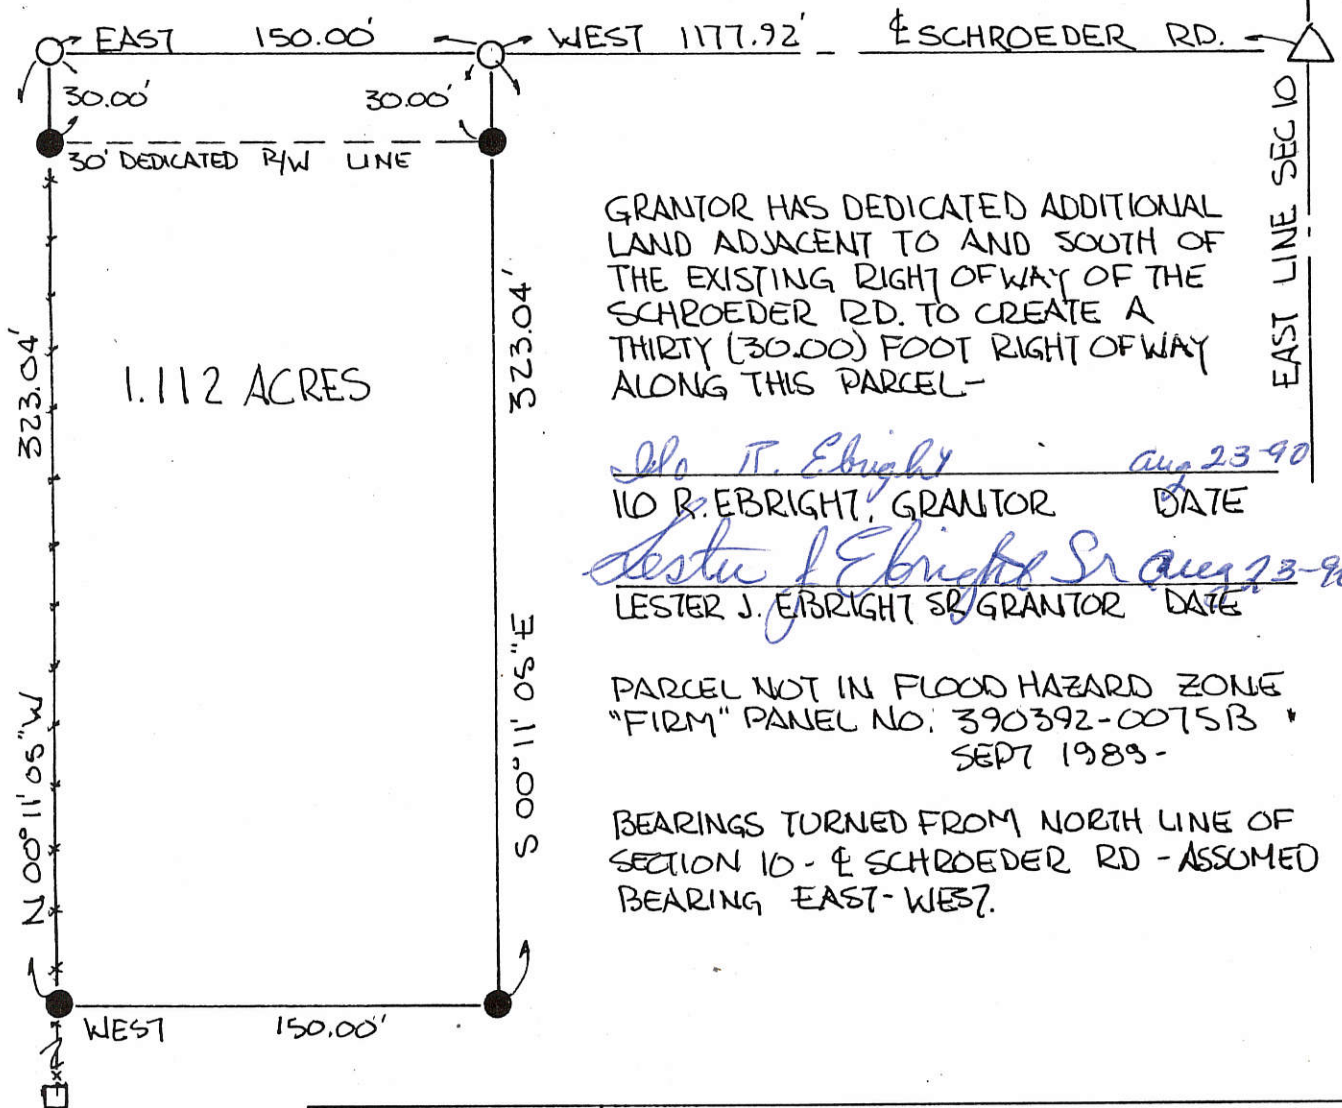 EAST 150.00' WEST 1177.92' ℄ SCHROEDER RD.
30.00' 30.00'
30' DEDICATED R/W LINE
EAST LINE SEC 10
323.04'
1.112 ACRES
323.04'
N 00° 11' 05" W
S 00° 11' 05" E
WEST 150.00'
GRANTOR HAS DEDICATED ADDITIONAL
LAND ADJACENT TO AND SOUTH OF
THE EXISTING RIGHT OF WAY OF THE
SCHROEDER RD. TO CREATE A
THIRTY (30.00) FOOT RIGHT OF WAY
ALONG THIS PARCEL-
Ilo R. Ebright Aug 23-90
ILO R. EBRIGHT, GRANTOR DATE
Lester J Ebright Sr Aug 23-90
LESTER J. EBRIGHT SR GRANTOR DATE
PARCEL NOT IN FLOOD HAZARD ZONE
"FIRM" PANEL NO. 390392-0075B
SEPT 1989-
BEARINGS TURNED FROM NORTH LINE OF
SECTION 10 - ℄ SCHROEDER RD - ASSUMED
BEARING EAST-WEST.